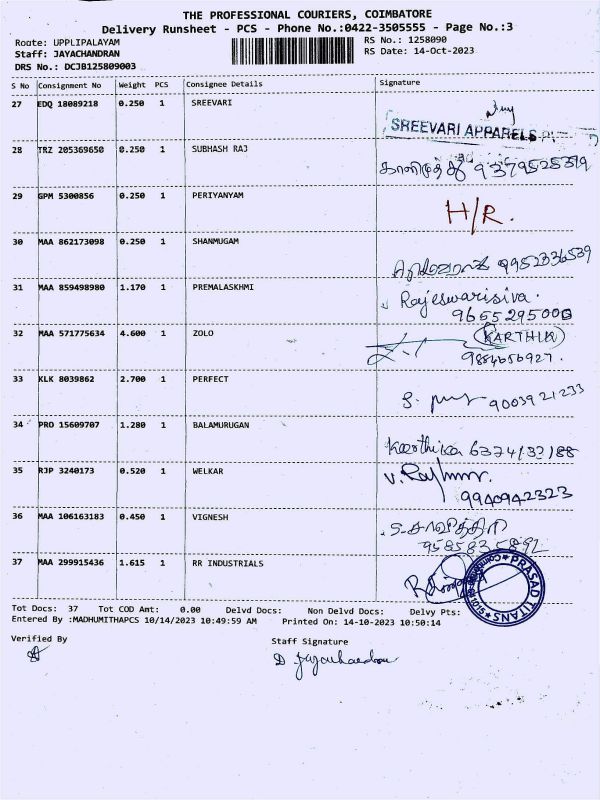 THE PROFESSIONAL COURIERS, COIMBATORE
Delivery Runsheet - PCS - Phone No.:0422-3505555 - Page No.:3
Route: UPPLIPALAYAM
RS No.: 1258090
Staff: JAYACHANDRAN
RS Date: 14-Oct-2023
DRS No.: DCJB125809003
S No Consignment No Weight PCS Consignee Details Signature
27 EDQ 18089218 0.250 1 SREEVARI
SREEVARI APPARELS
28 TRZ 205369650 0.250 1 SUBHASH RAJ
9379525399
29 GPM 5300856 0.250 1 PERIYANYAM
H/R.
30 MAA 862173098 0.250 1 SHANMUGAM
9952336539
31 MAA 859498980 1.170 1 PREMALASKHMI
Rajeswarisiva.
9655295000
32 MAA 571775634 4.600 1 ZOLO
KARTHIK
9884656927.
33 KLK 8039862 2.700 1 PERFECT
9003921233
34 PRO 15609707 1.280 1 BALAMURUGAN
Karthika 6374132188
35 RJP 3240173 0.520 1 WELKAR
9940942323
36 MAA 106163183 0.450 1 VIGNESH
S. சாவித்திரி
9585835892
37 MAA 299915436 1.615 1 RR INDUSTRIALS
PRASAD TITANS
Tot Docs: 37 Tot COD Amt: 0.00 Delvd Docs: Non Delvd Docs: Delvy Pts:
Entered By :MADHUMITHAPCS 10/14/2023 10:49:59 AM Printed On: 14-10-2023 10:50:14
Verified By
Staff Signature
D Jayachandran